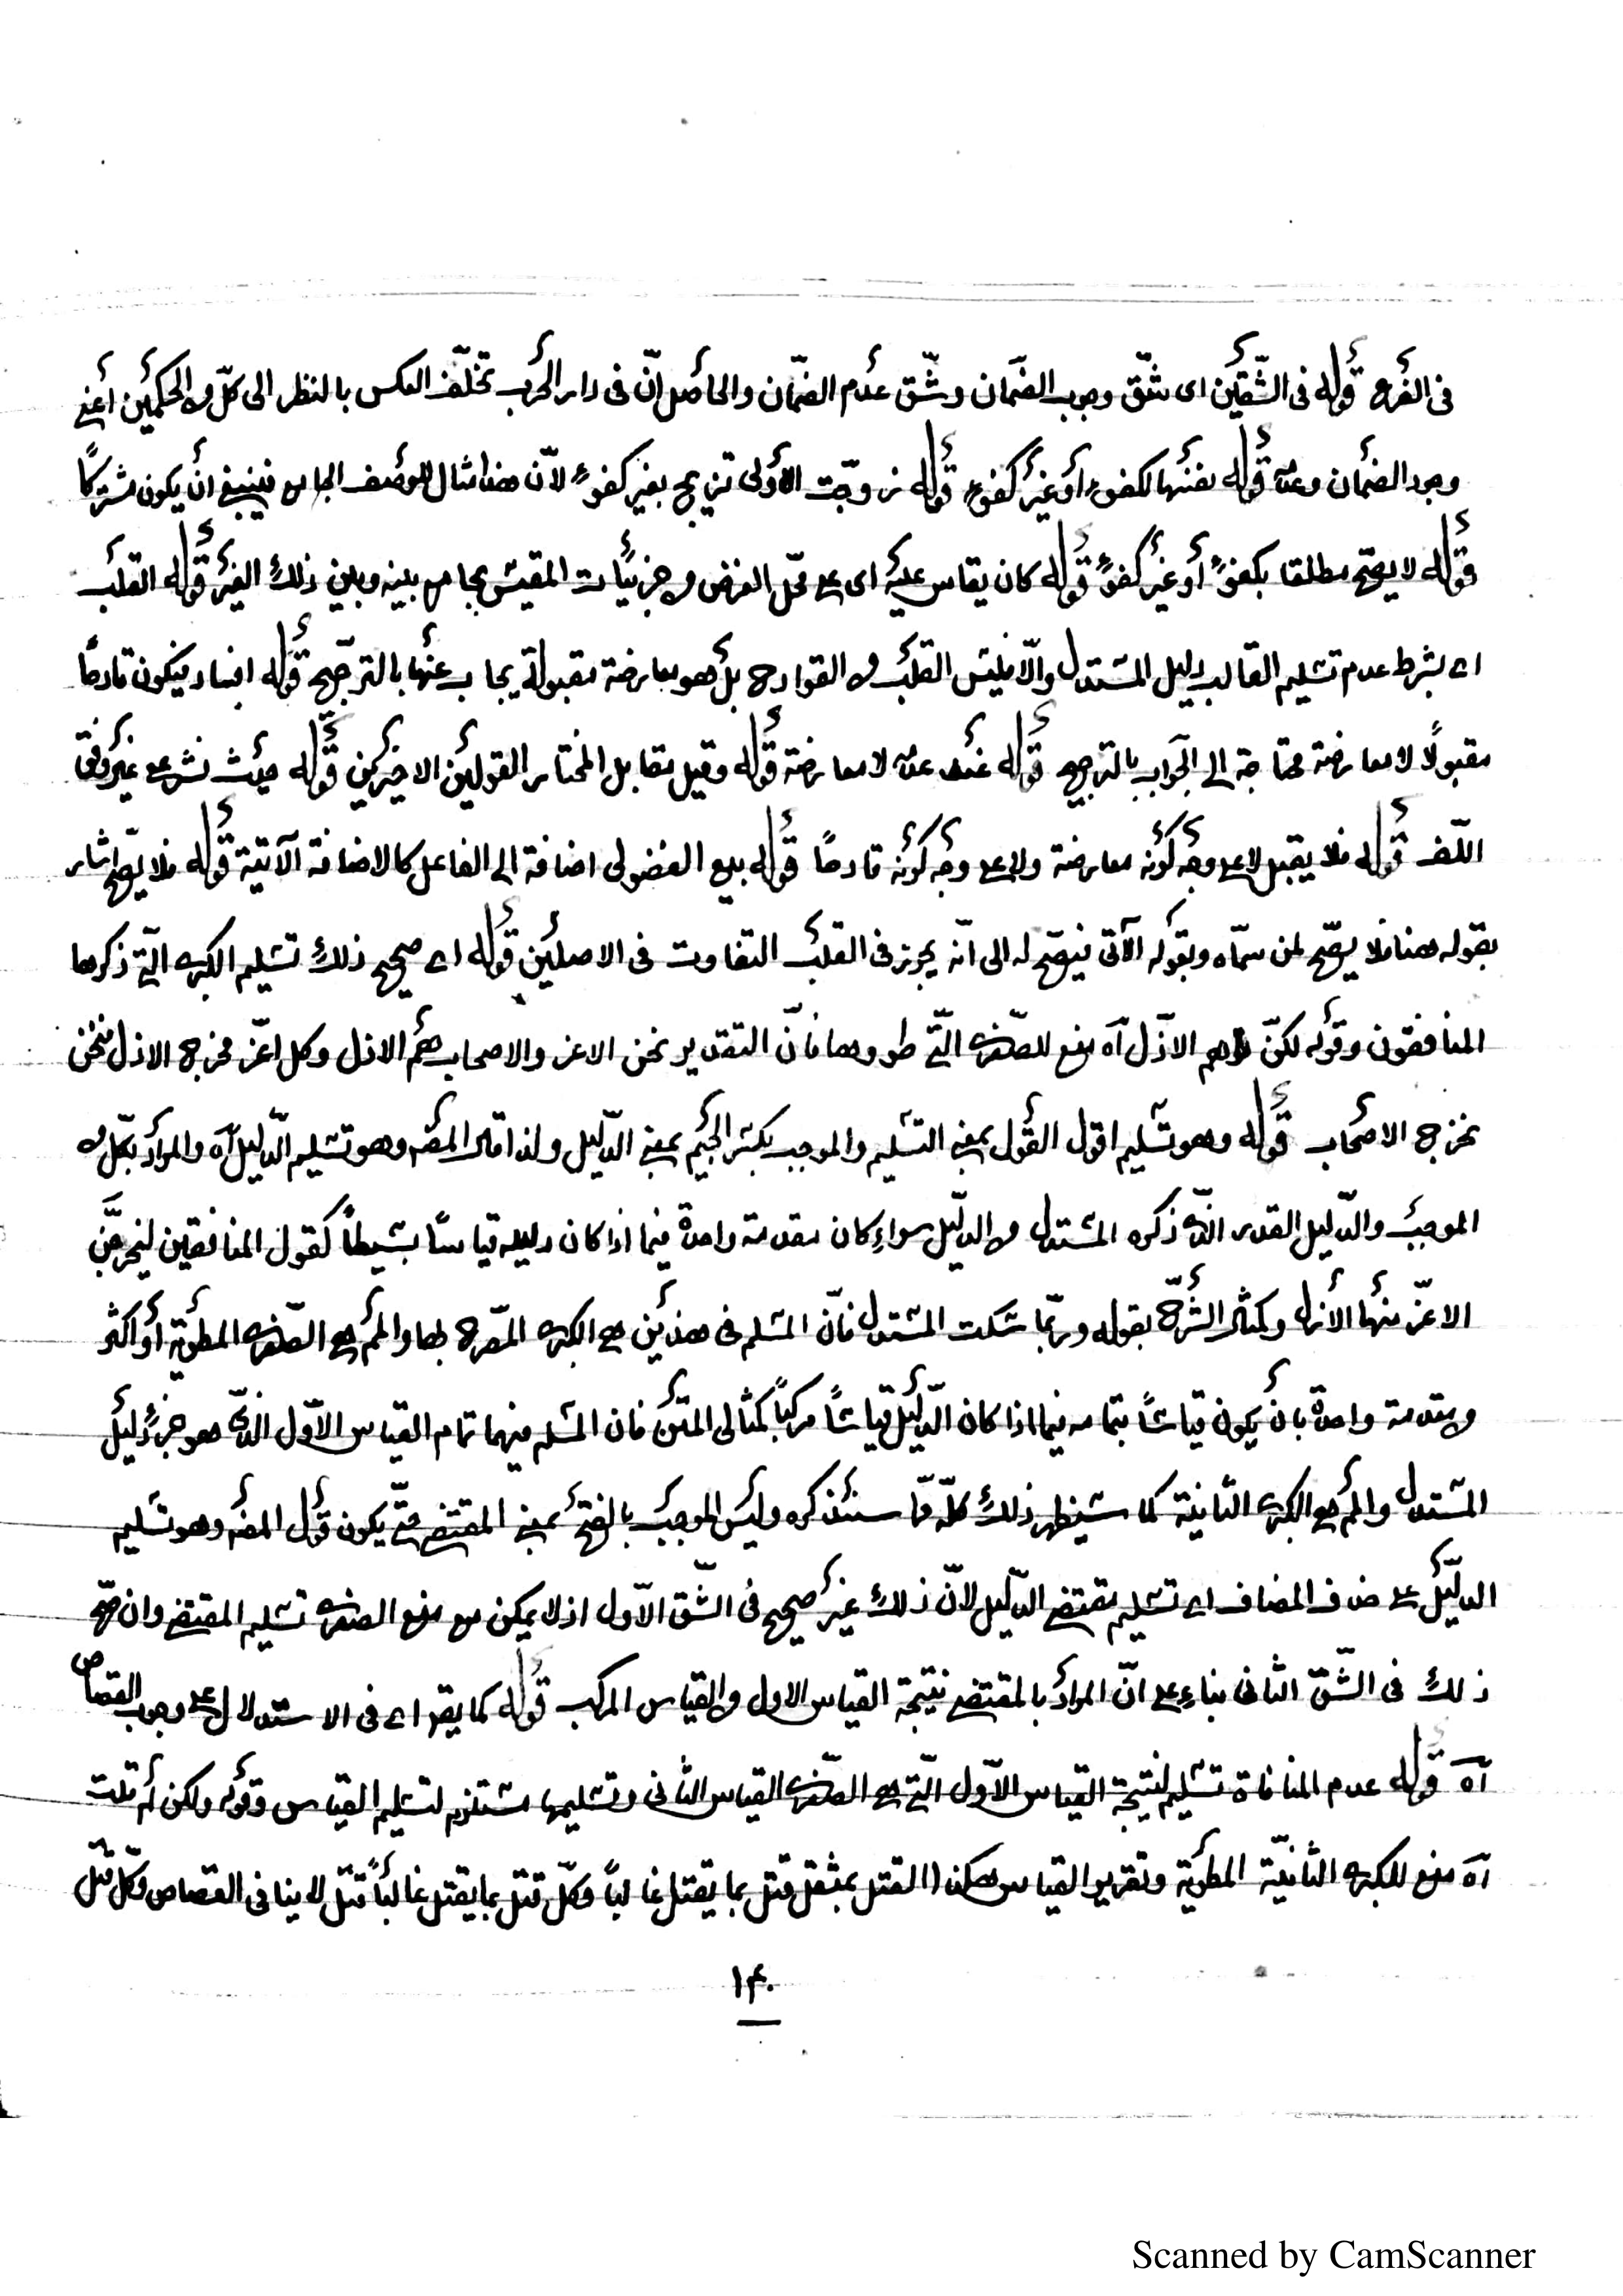 فى الفرع قوله فى الشقين اى شق وجوب الضمان وشق عدم الضمان والحاصل انّ فى دار الحرب تخلّف العكس بالنظر الى كلّ من الحكمين اعنى
وجود الضمان وعدمه قوله نفسها لكفوء أو غير كفوء قوله زوّجت الأولى تزويج بغير كفوء لانّ هذا مثال للوصف الجامع فينبغى انْ يكون مشتركا
قوله لا يصحّ مطلقا بكفوء أو غير كفوء قوله كان يقاس عليه اى على محلّ الفرض من جزئيّات المقيس بجامع بينه وبين ذلك الغير قوله القلب
اى بشرط عدم تسليم القالب دليل المستدل والّا فليس القلب من القوادح بل هو معارضة مقبولة يجاب عنها بالترجيح قوله افساد فيكون قادحًا
مقبولًا لا معارضة محتاجة الى الجواب بالترجيح قوله عند عدمه لا معارضة قوله وقيل مقابل المختار القولين الاخيرين قوله حيث نشر على غير وفق
اللّف قوله فلا يقبل لا على وجه كونه معارضة ولا على وجه كونه قادحًا قوله بيع الفضولى اضافة الى الفاعل كالاضافة الآتية قوله فلا يصحّ اشار
بقوله هنا فلا يصحّ لمن سمّاه وبقوله الآتى فيصح له الى انّه يجوز فى القلب التفاوت فى الاصلين قوله اى صحيح ذلك تسليم الكبرى الّتى ذكرها
المنافقون وقوله لكنّ هم الاذّل آه منع للصّغرى الّتى طووها فانّ التقدير نحن الاعز والاصحاب هم الاذل وكل اعّز مخرج الاذل فنحن
نخرج الاصحاب قوله وهو تسليم اقول القول بمعنى التسليم والموجب بكسر الجيم بمعنى الدّليل ولذا قال المصنف وهو تسليم الدّليل آه والمراد بكّل من
الموجب والدّليل القدر الّذى ذكره المستدل من الدليل سواء كان مقدمة واحدة فيما اذا كان دليله قياسًا بسيطاً كقول المنافقين ليخرجنّ
الاعزّ منها الأذل وكمثال الشرح بقوله وربّما سكت المستدل فانّ المسلم فى هذين هى الكبرى المصّرح بها والمم هى الصّغرى المطويّة أو اكثر
من مقدمة واحدة بان يكون قياسًا بتمامه فيما اذا كان الدّليل قياسًا مركبًا كمثالى المتن فان المسلم فيهما تمام القياس الاوّل الذّى هو جزء دليل
المستدل والمم هى الكبرى الثانية كما سيظهر ذلك كلّه ممّا سنذكره وليس الموجب بالفتح بمعنى المقتضى حتّى يكون قول المصنف وهو تسليم
الدليل على حذف المضاف اى تسليم مقتضى الدّليل لانّ ذلك غير صحيح فى الشّق الاوّل اذ لا يمكن مع منع الصغرى تسليم المقتضى وان صحّ
ذلك فى الشّق الثانى بناء على انّ المراد بالمقتضى نتيجة القياس الاول من القياس المركب قوله كما يقال اى فى الاستدلال على وجوب القصاص
آه قوله عدم المنافاة تسليم لنتيجة القياس الاوّل الّتى هى الصّغرى القياس الثانى وتسليمها مستلزم لتسليم القياس وقوله ولكن لم قلت
آه منع للكبرى الثانيّة المطويّة وتقرير القياس هكذا (القتل بمثقل قتل بما يقتل غالبًا وكلّ قتل بما يقتل غالبًا قتل لا ينافى القصاص وكلّ قتل
١٤٠
Scanned by CamScanner